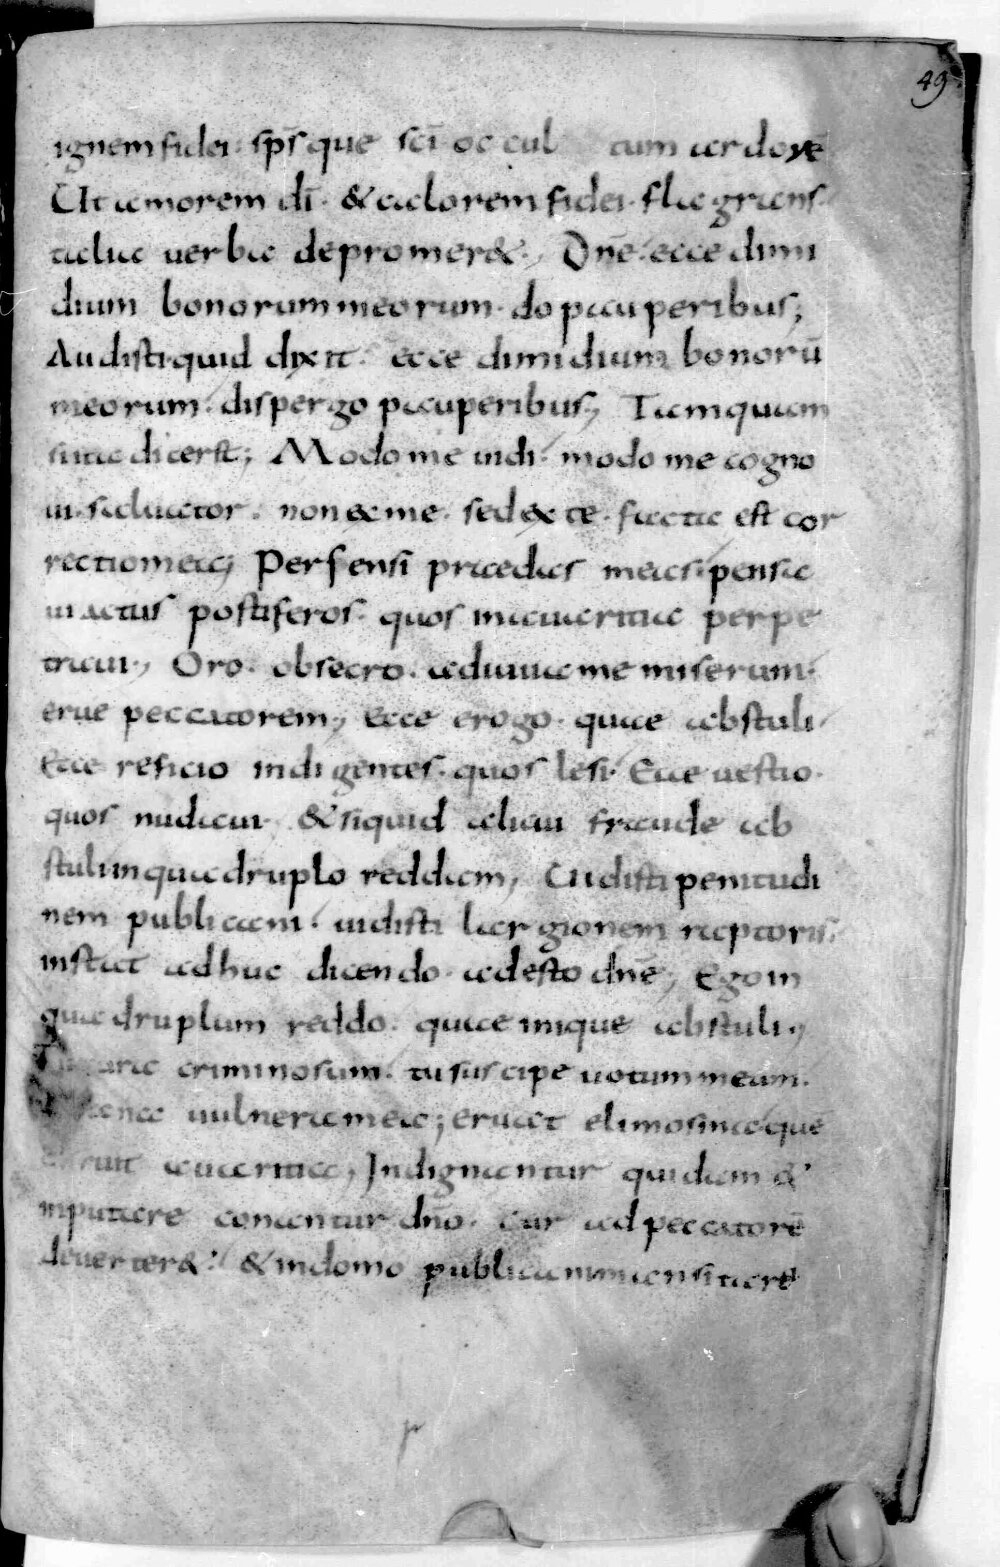 49.
ignem fidei · sp̄s que sc̄i occul tum ardorē
Ut amorem dī · & calorem fidei · flagrans ·
talia verba depromer& ·, Dn̄e · ecce dimi
dium bonorum meorum · do pauperibus ;
Audisti · quid dixit · ecce dimidium bonorū
meorum · dispergo pauperibus ·, Tamquam
sua dicerst ; Modo me uidi · modo me cogno
ui · saluator · non ex me · sed ex te · facta est cor
rectio mea ; Persensi praedas meas · pensa
ui actus pestiferos · quos in auaritia perpe
traui ·, Oro · obsecro · adiuua me miserum ·
erue peccatorem ·, ecce erogo · quae abstuli ·
Ecce reficio indigentes · quos lesi · Ecce uestio ·
quos nudaui · & siquid alicui fraude ab
stuli in quadruplo reddam ·, Audisti penitudi
nem publicani · uidisti largionem raptoris ·
instat adhuc dicendo · adesto dn̄e ·, Ego in
quadruplum reddo · quae inique abstuli ·,
criminosum · tu suscipe uotum meum ·
uulnera mea ; eruat elimosina quē
auaritia ·, Indignantur quidam &
inputare conantur dn̄o · cur ad peccatorē
deuerter& · & in domo publicani mansitare